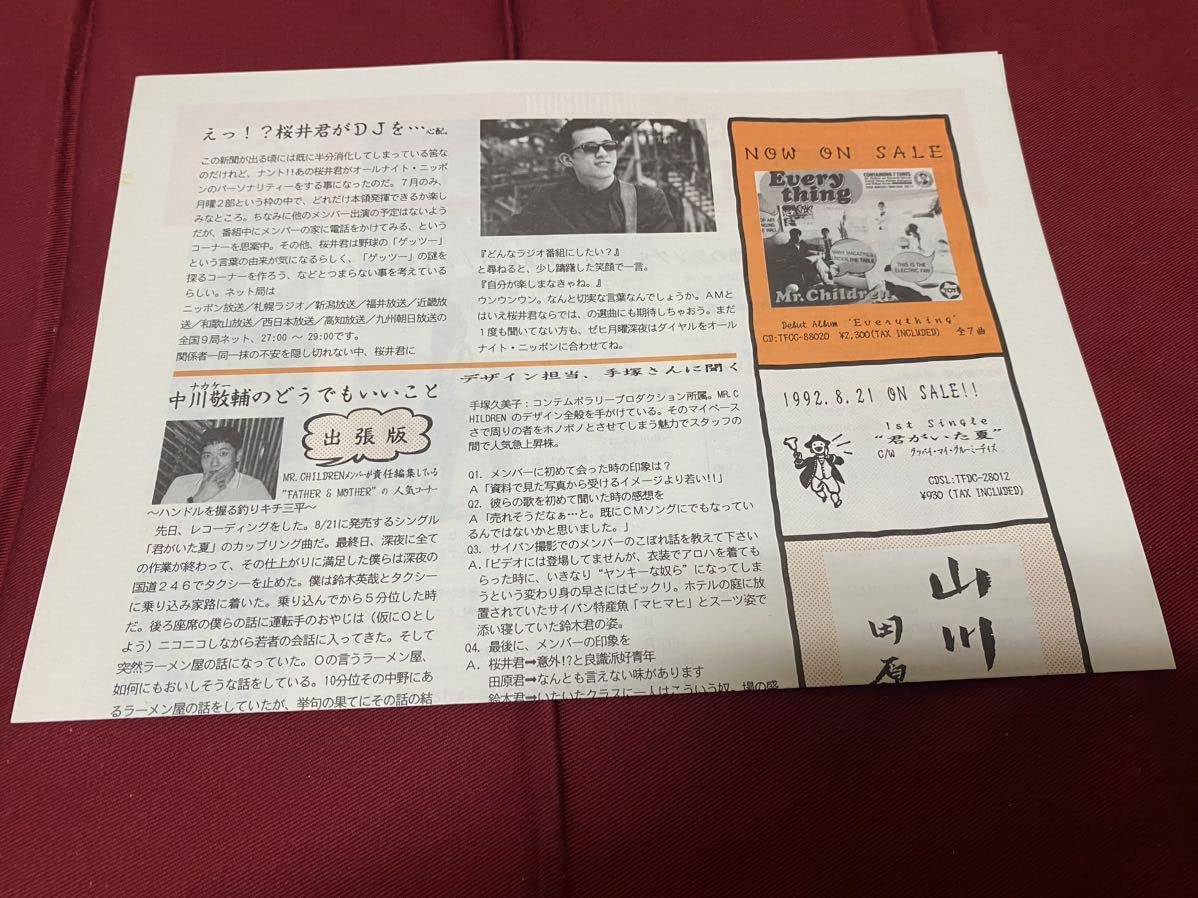 えっ！？桜井君がＤＪを…心配。
この新聞が出る頃には既に半分消化してしまっている筈な
のだけれど、ナント!!あの桜井君がオールナイト・ニッポ
ンのパーソナリティーをする事になったのだ。７月のみ、
月曜２部という枠の中で、どれだけ本領発揮できるか楽し
みなところ。ちなみに他のメンバー出演の予定はないよう
だが、番組中にメンバーの家に電話をかけてみる、という
コーナーを思案中。その他、桜井君は野球の「ゲッツー」
という言葉の由来が気になるらしく、「ゲッツー」の謎を
探るコーナーを作ろう、などとつまらない事を考えている
らしい。ネット局は
ニッポン放送／札幌ラジオ／新潟放送／福井放送／近畿放
送／和歌山放送／西日本放送／高知放送／九州朝日放送の
全国９局ネット、27:00 ～ 29:00です。
関係者一同一抹の不安を隠し切れない中、桜井君に
『どんなラジオ番組にしたい？』
と尋ねると、少し躊躇した笑顔で一言。
『自分が楽しまなきゃね。』
ウンウンウン。なんと切実な言葉なんでしょうか。ＡＭと
はいえ桜井君ならでは、の選曲にも期待しちゃおう。まだ
１度も聞いてない方も、ゼヒ月曜深夜はダイヤルをオール
ナイト・ニッポンに合わせてね。
ナカケー
中川敬輔のどうでもいいこと
出張版
MR.CHILDRENメンバーが責任編集している
"FATHER & MOTHER" の 人気コーナー
～ハンドルを握る釣りキチ三平～
先日、レコーディングをした。8/21に発売するシングル
「君がいた夏」のカップリング曲だ。最終日、深夜に全て
の作業が終わって、その仕上がりに満足した僕らは深夜の
国道２４６でタクシーを止めた。僕は鈴木英哉とタクシー
に乗り込み家路に着いた。乗り込んでから５分位した時
だ。後ろ座席の僕らの話に運転手のおやじは（仮にＯとし
よう）ニコニコしながら若者の会話に入ってきた。そして
突然ラーメン屋の話になっていた。Ｏの言うラーメン屋、
如何にもおいしそうな話をしている。10分位その中野にあ
るラーメン屋の話をしていたが、挙句の果てにその話の結
デザイン担当、手塚さんに聞く
手塚久美子：コンテムポラリープロダクション所属。MR.C
HILDREN のデザイン全般を手がけている。そのマイペース
さで周りの者をホノボノとさせてしまう魅力でスタッフの
間で人気急上昇株。
Q1. メンバーに初めて会った時の印象は？
A「資料で見た写真から受けるイメージより若い!!」
Q2. 彼らの歌を初めて聞いた時の感想を
A「売れそうだなぁ…と。既にＣＭソングにでもなってい
るんではないかと思いました。」
Q3. サイパン撮影でのメンバーのこぼれ話を教えて下さい
A.「ビデオには登場してませんが、衣装でアロハを着ても
らった時に、いきなり“ヤンキーな奴ら”になってしま
うという変わり身の早さにはビックリ。ホテルの庭に放
置されていたサイパン特産魚「マヒマヒ」とスーツ姿で
添い寝していた鈴木君の姿。
Q4. 最後に、メンバーの印象を
A. 桜井君➡意外!?と良識派好青年
田原君➡なんとも言えない味があります
鈴木君➡いたいたクラスに一人はこういう奴。場の盛
NOW ON SALE
Every thing
CONTAINING 7 TUNES
THIS IS THE ELECTRIC FAN
Mr.Children
Debut Album 'Everything'
CD:TFCC-88020 ¥2,300(TAX INCLUDED) 全７曲
1992.8.21 ON SALE!!
1st Single
“君がいた夏”
C/W グッバイ・マイ・グルーミーデイズ
CDSL:TFDC-28012
¥930 (TAX INCLUDED)
山川
田原